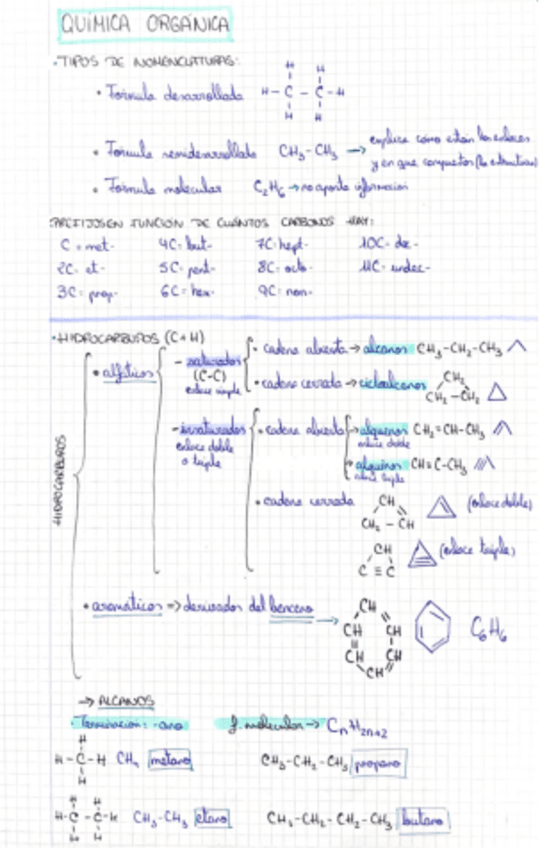 QUÍMICA ORGÁNICA
· TIPOS DE NOMENCLATURAS:
· Fórmula desarrollada H-C-C-H H H H H
· Fórmula semidesarrollada CH3-CH3 → explica cómo están los enlaces
y en que compuestos (la estructura)
· Fórmula molecular C2H6 → no aporta información
PREFIJOS EN FUNCIÓN DE CUÁNTOS CARBONOS HAY:
C = met- 4C: but- 7C: hept- 10C: dec-
2C: et- 5C: pent- 8C: octo- 11C: undec-
3C: prop- 6C: hex- 9C: non-
· HIDROCARBUROS (C+H)
HIDROCARBUROS
· alifáticos
- saturados
(C-C)
enlace simple
· cadena abierta → alcanos CH3-CH2-CH3
· cadena cerrada → cicloalcanos CH2 CH2-CH2
- insaturados
enlace doble
o triple
· cadena abierta → alquenos CH2=CH-CH3
enlace doble
→ alquinos CH≡C-CH3
enlace triple
· cadena cerrada CH CH2-CH (enlace doble)
CH C≡C (enlace triple)
· aromáticos => derivados del benceno → CH CH CH CH CH CH C6H6
→ ALCANOS
· Terminación: -ano f. molecular → CnH2n+2
H-C-H H H CH4 metano CH3-CH2-CH3 propano
H-C-C-H H H H H CH3-CH3 etano CH3-CH2-CH2-CH3 butano